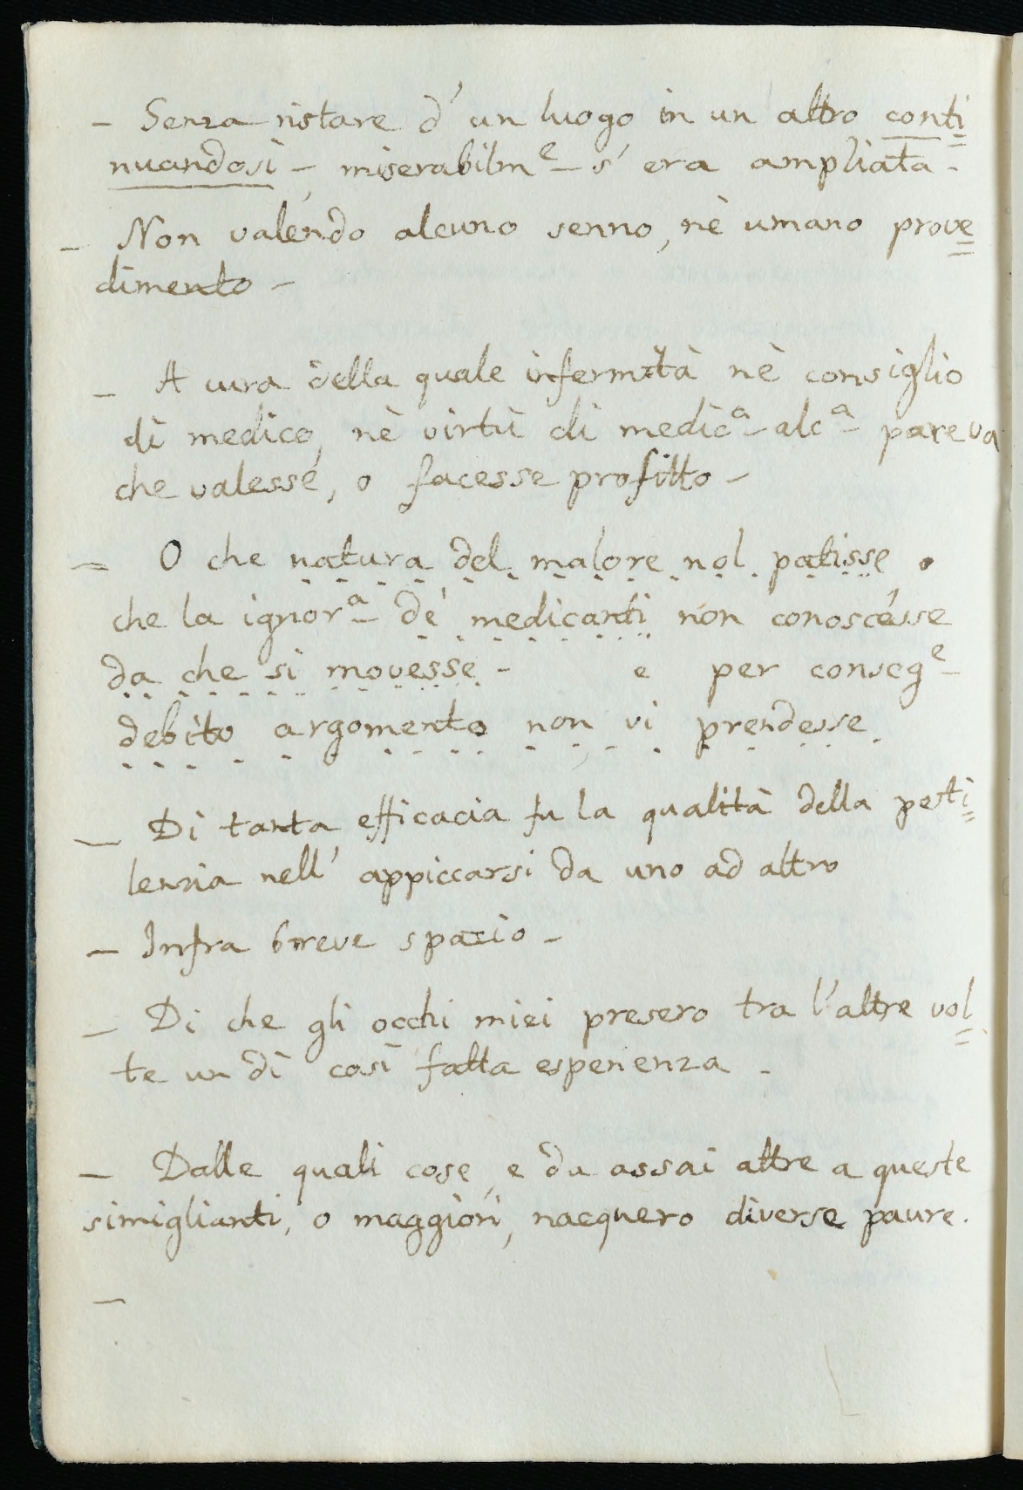 – Senza ristare d' un luogo in un altro conti=
nuandosi – miserabilmᵉ – s' era ampliata –
– Non valendo alcuno senno, nè umano prove=
dimento –
– A cura della quale infermità nè consiglio
di medico, nè virtù di medicᵃ – alcᵃ – pareva
che valesse, o facesse profitto –
– O che natura del malore nol patisse o
che la ignorᵃ – de' medicanti non conoscesse
da che si movesse – e per consegᵉ –
debito argomento non vi prendesse.
– Di tanta efficacia fu la qualità della pesti=
lenzia nell' appiccarsi da uno ad altro
– Infra breve spazio –
– Di che gli occhi miei presero tra l'altre vol=
te un dì così fatta esperienza –
– Dalle quali cose, e da assai altre a queste
simiglianti, o maggiori, nacquero diverse paure.
–